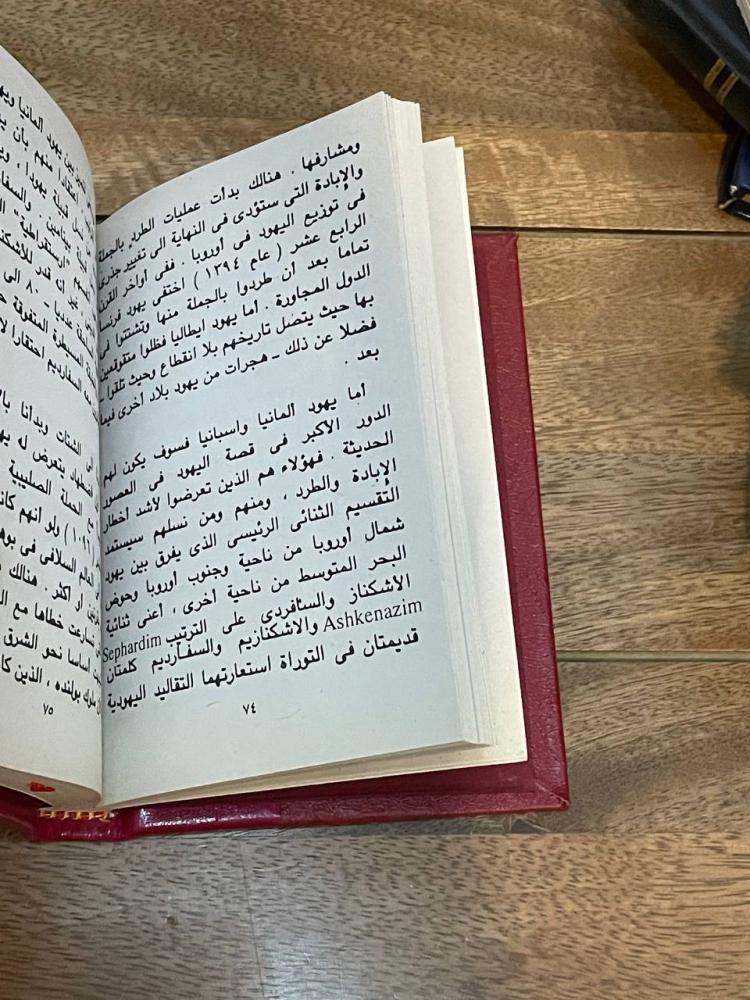 ومشارفها . هنالك بدأت عمليات الطرد بالجملة
والإبادة التى ستؤدى فى النهاية الى تغيير جذرى
فى توزيع اليهود فى أوروبا . ففى أواخر القرن
الرابع عشر ( عام ١٣٩٤ ) اختفى يهود فرنسا
تماما بعد أن طردوا بالجملة منها وتشتتوا فى
الدول المجاورة . أما يهود ايطاليا فظلوا متقوقعين
بها حيث يتصل تاريخهم بلا انقطاع وحيث تلقوا ـ
فضلا عن ذلك ـ هجرات من يهود بلاد أخرى فيما
بعد .
أما يهود ألمانيا واسبانيا فسوف يكون لهم
الدور الأكبر فى قصة اليهود فى العصور
الحديثة . فهؤلاء هم الذين تعرضوا لأشد أخطار
الإبادة والطرد ، ومنهم ومن نسلهم سيستمد
التقسيم الثنائى الرئيسى الذى يفرق بين يهود
شمال أوروبا من ناحية وجنوب أوروبا وحوض
البحر المتوسط من ناحية أخرى ، أعنى ثنائية
الأشكناز والسأفردى على الترتيب Sephardim
Ashkenazim والاشكنازيم والسفارديم كلمتان
قديمتان فى التوراة استعارتهما التقاليد اليهودية
٧٤
بين يهود ألمانيا
اعتقادا منهم بأن
قبيلة يهودا ،
بنيامين . والسفار
"ارستقراطية"
غير أنه قدر للأشكن
عدديا - ٨٠ الى
المسيطرة المتفوقة
السفارديم احتقارا
الشتات وبدأنا
يتعرض له
مع الحملة الصليبية
( ١٠٩٦ ) ولو أنهم
العالم السلافى فى
أو أكثر . هنالك
تسارعت خطاها مع
أساسا نحو الشرق
ملوك بولنده ، الذين
٧٥